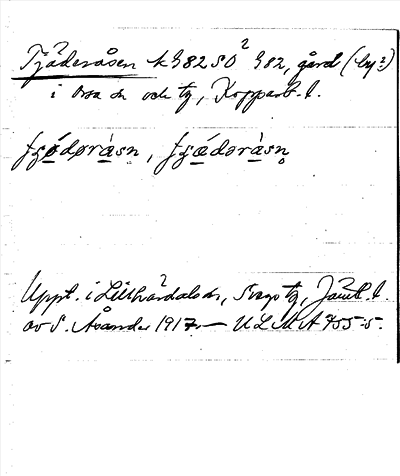 Tjäderåsen k 982 SO² 982, gård (by?)
i Orsa sn och tg, Kopparb. l.
fjǿdəràsn, fjǽdəràsn̥
Uppt. i Lillhärdals sn, Svegs tg, Jämtl. l.
av S. Åsander 1917 — ULMA 455:5.